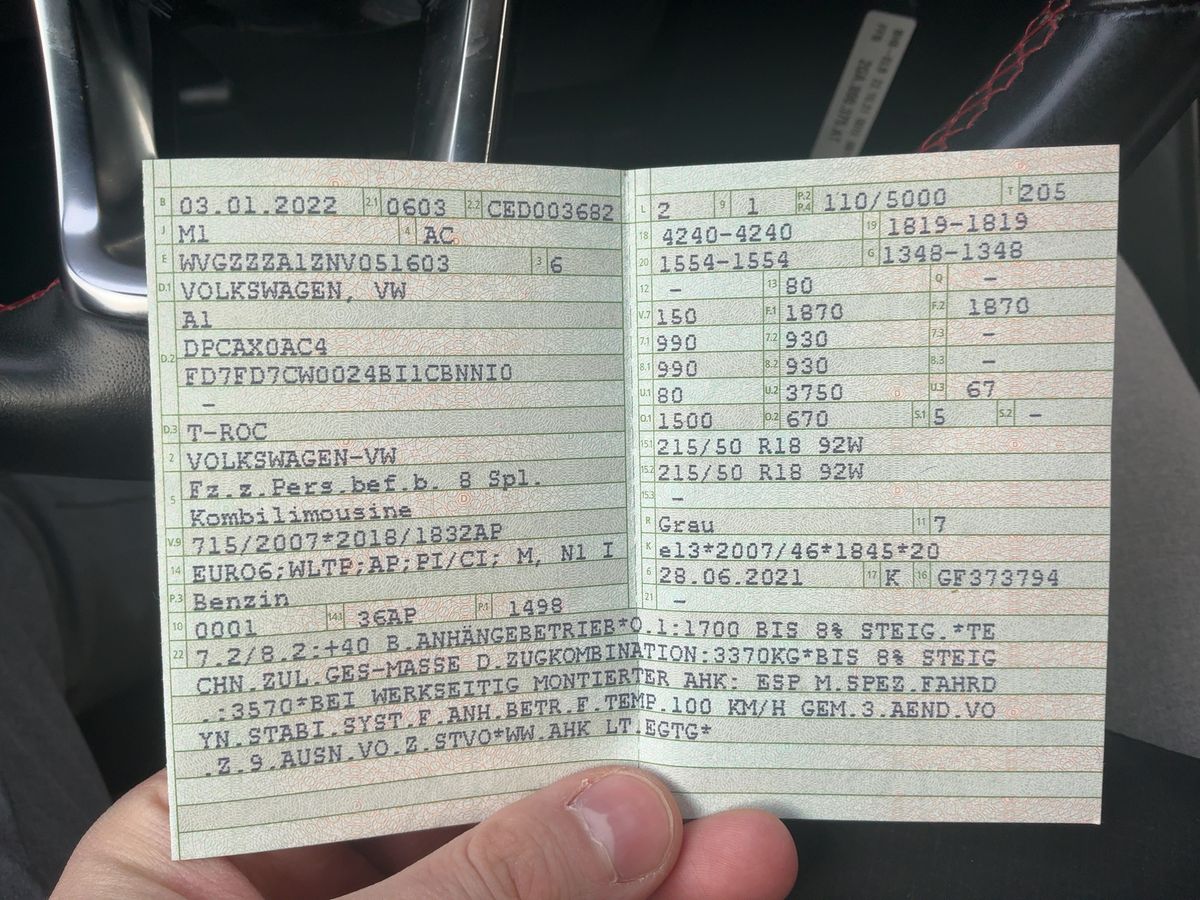 B 03.01.2022 2.1 0603 2.2 CED003682
J M1 4 AC
E WVGZZZA1ZNV051603 3 6
D.1 VOLKSWAGEN, VW
A1
D.2 DPCAX0AC4
FD7FD7CW0024BI1CBNNI0
–
D.3 T-ROC
2 VOLKSWAGEN-VW
5 Fz.z.Pers.bef.b. 8 Spl.
Kombilimousine
V.9 715/2007*2018/1832AP
14 EURO6;WLTP;AP;PI/CI; M, N1 I
P.3 Benzin
10 0001 14.1 36AP P.1 1498
L 2 9 1 P.2 P.4 110/5000 T 205
18 4240-4240 19 1819-1819
20 1554-1554 G 1348-1348
12 – 13 80 Q –
V.7 150 F.1 1870 F.2 1870
7.1 990 7.2 930 7.3 –
8.1 990 8.2 930 8.3 –
U.1 80 U.2 3750 U.3 67
O.1 1500 O.2 670 S.1 5 S.2 –
15.1 215/50 R18 92W
15.2 215/50 R18 92W
15.3 –
R Grau 11 7
K e13*2007/46*1845*20
6 28.06.2021 17 K 16 GF373794
21 –
22 7.2/8.2:+40 B.ANHÄNGEBETRIEB*O.1:1700 BIS 8% STEIG.*TE
CHN.ZUL.GES-MASSE D.ZUGKOMBINATION:3370KG*BIS 8% STEIG
.:3570*BEI WERKSEITIG MONTIERTER AHK: ESP M.SPEZ.FAHRD
YN.STABI.SYST.F.ANH.BETR.F.TEMP.100 KM/H GEM.3.AEND.VO
.Z.9.AUSN.VO.Z.STVO*WW.AHK LT.EGTG*